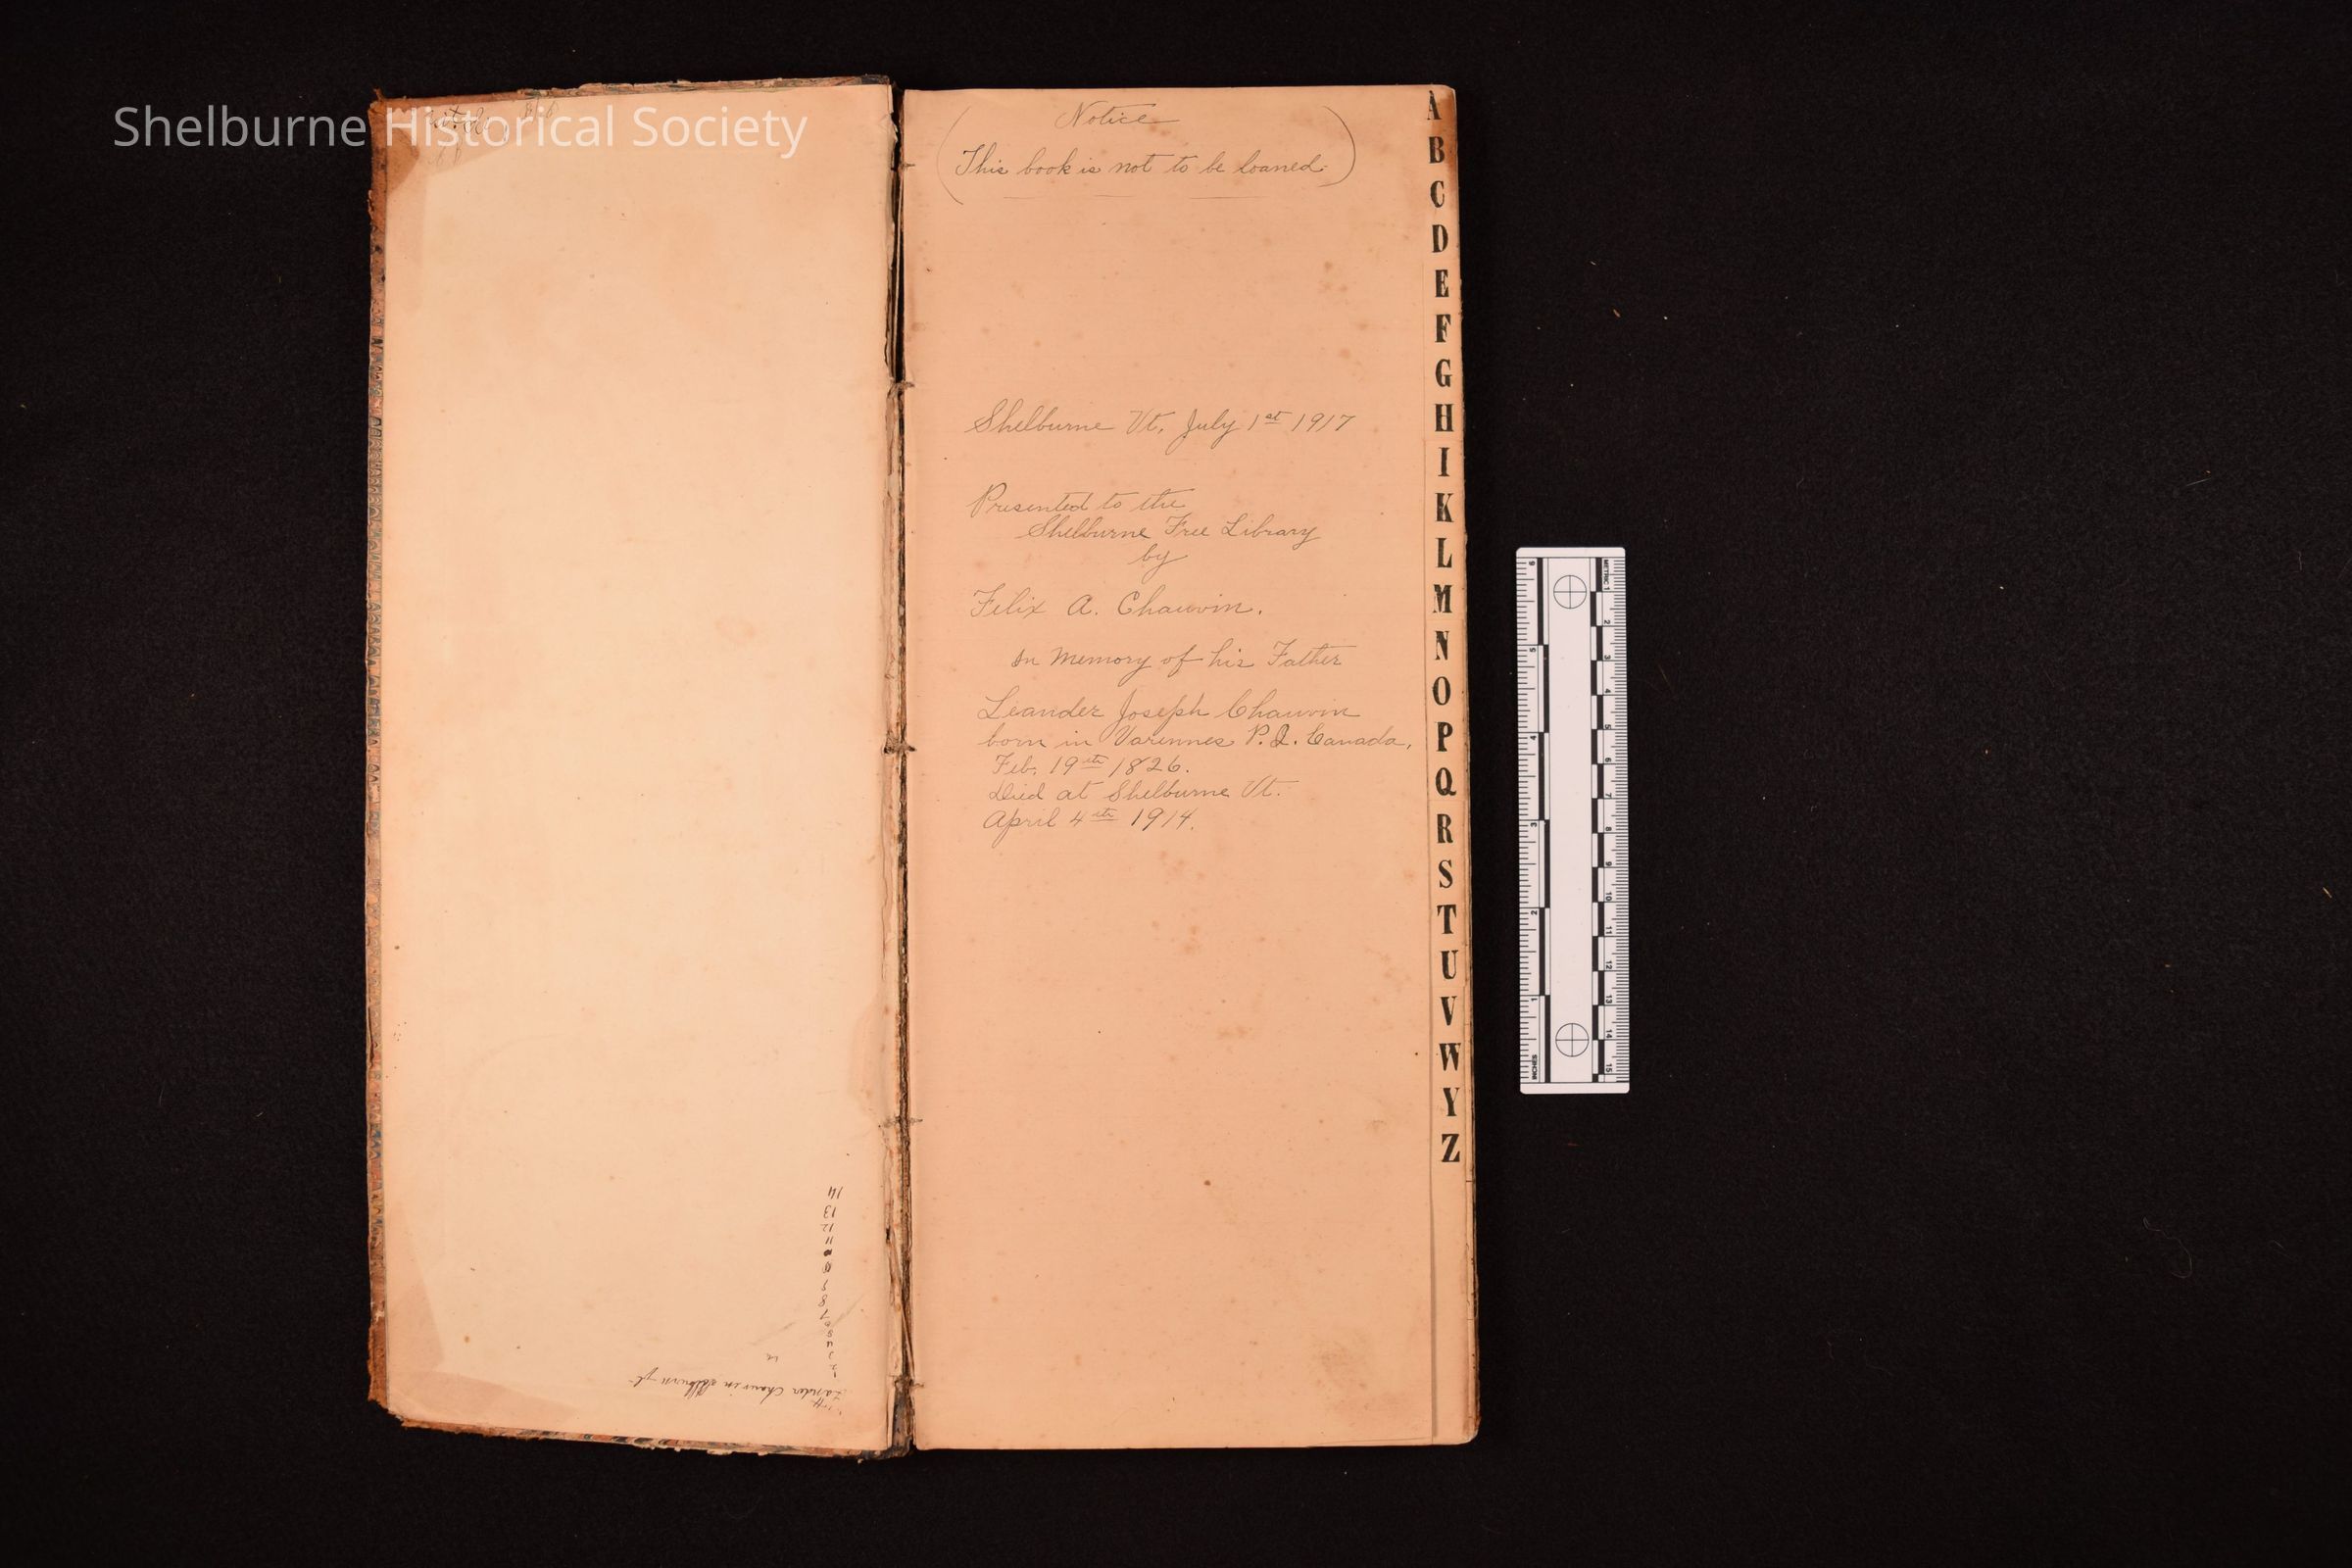 Shelburne Historical Society
Notice
This book is not to be loaned.
Shelburne Vt. July 1st 1917
Presented to the
Shelburne Free Library
by
Felix A. Chauvin.
In Memory of his Father
Leander Joseph Chauvin
born in Varennes P.Q. Canada,
Feb. 19th 1826.
Died at Shelburne Vt.
April 4th 1914.
A
B
C
D
E
F
G
H
I
K
L
M
N
O
P
Q
R
S
T
U
V
W
Y
Z
Chauvin
7
8
11
12
13
14
INCHES
1
2
3
4
5
6
METRIC 1
2
3
4
5
6
7
8
9
10
11
12
13
14
15